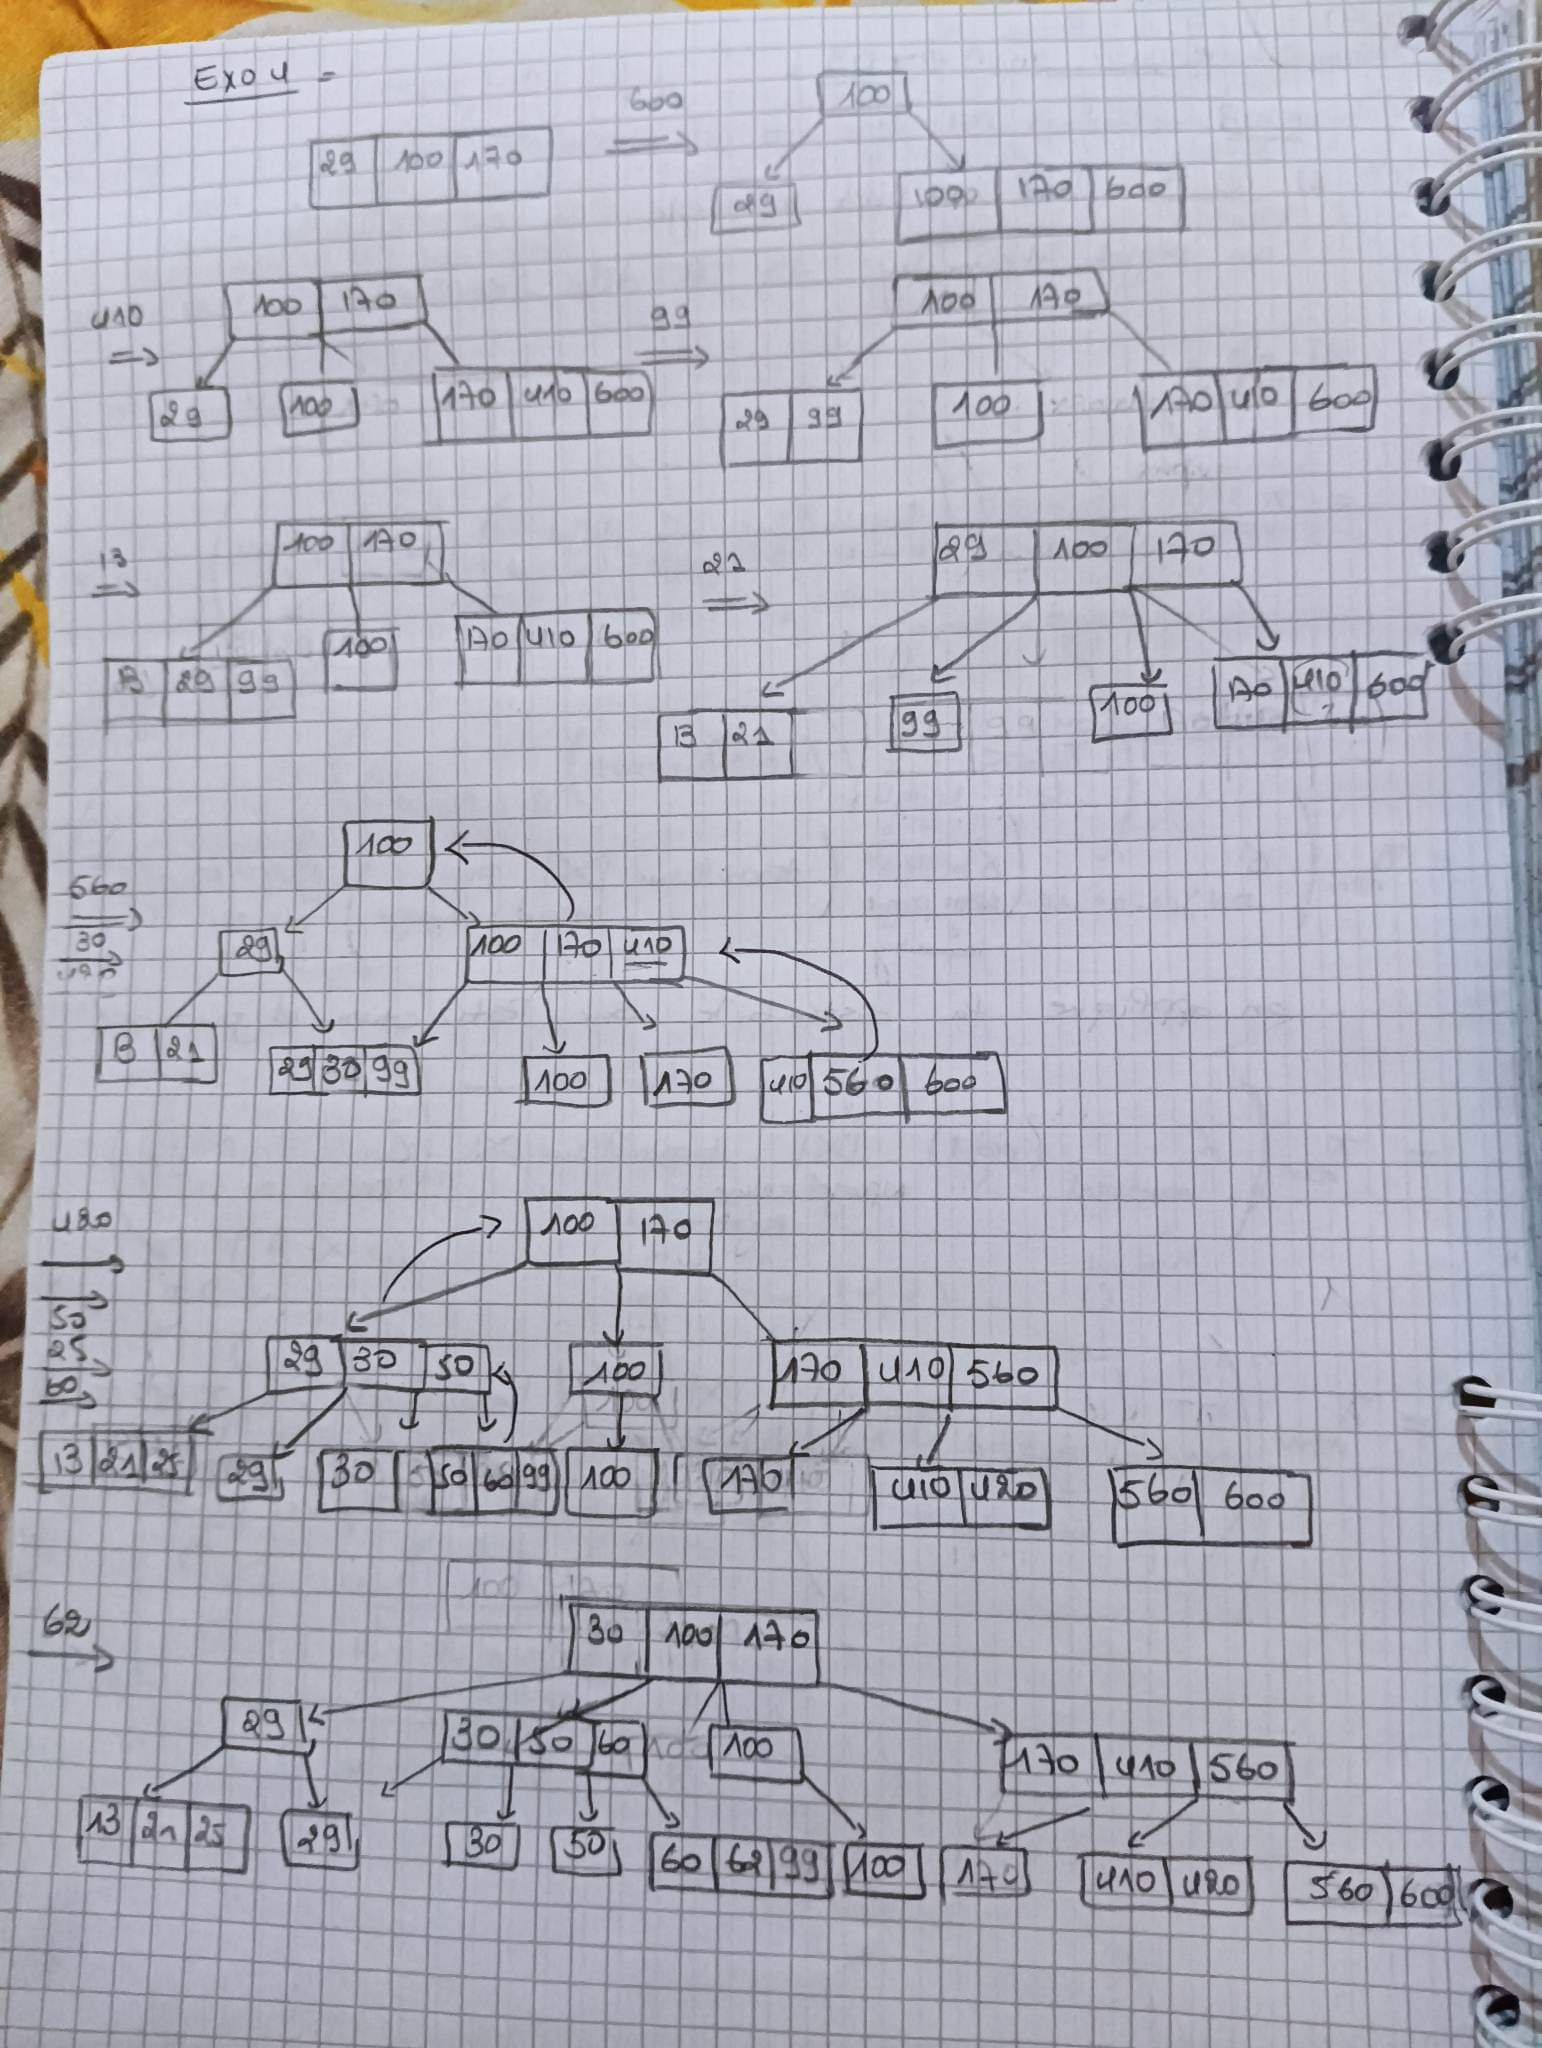 Exo 4 =
600
100
29 100 170
29 100 170 600
410 100 170 99 100 170
29 100 170 410 600 29 99 100 170 410 600
13 100 170 21 29 100 170
13 29 99 100 170 410 600 13 21 99 100 170 410 600
100
560
30
420
29 100 170 410
13 21 29 30 99 100 170 410 560 600
420 100 170
50
25
60
29 30 50 100 170 410 560
13 21 25 29 30 50 60 99 100 170 410 420 560 600
100 170
62 30 100 170
29 30 50 60 100 170 410 560
13 21 25 29 30 50 60 62 99 100 170 410 420 560 600